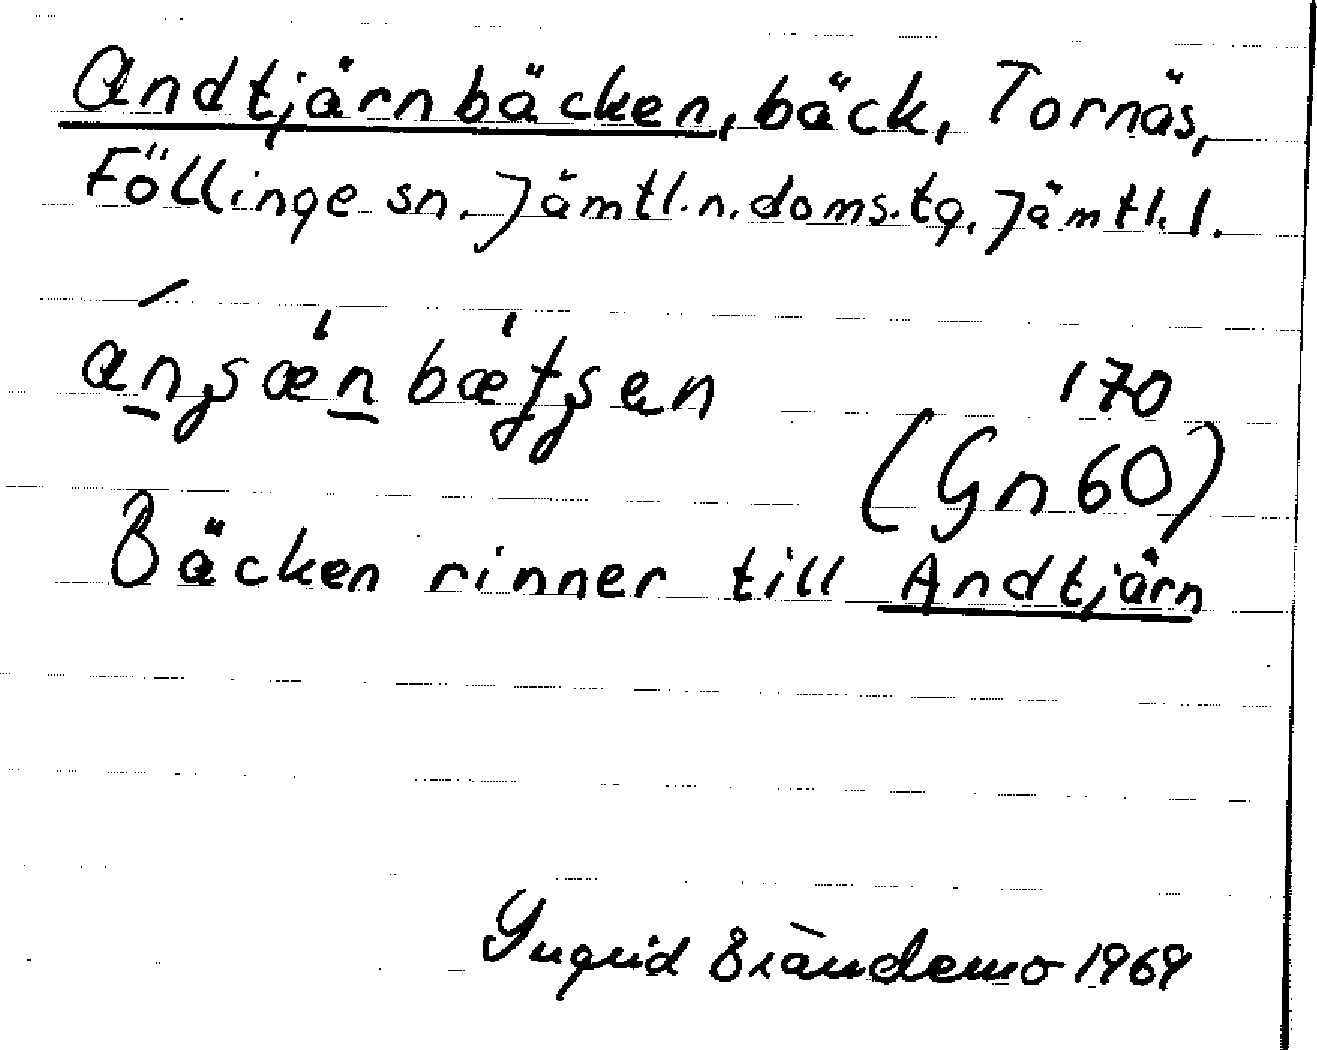 Andtjärnbäcken, bäck, Tornäs,
Föllinge sn. Jämtl.n.doms.tg. Jämtl.l.
170
(Gn 60)
Bäcken rinner till Andtjärn
Ingrid Brändemo 1969